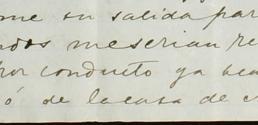 me su salida par
ndos me serian re
por conducto ya sea
ó de la casa de c